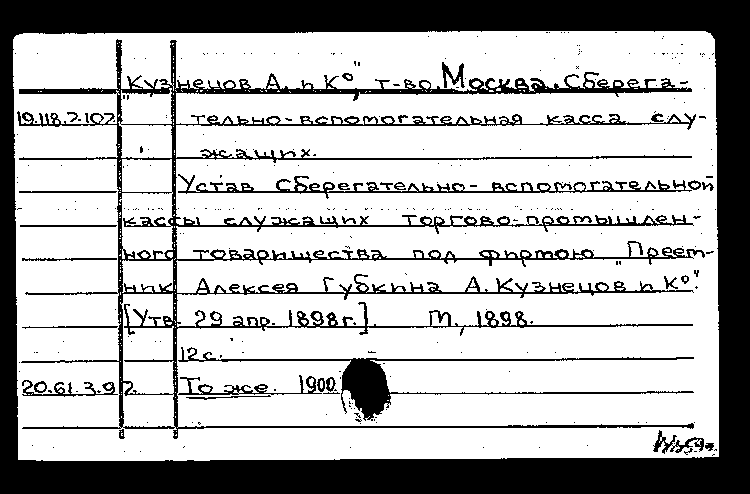 "Кузнецов А. и К°", т-во. Москва. Сберега-
19.118.2.102 тельно-вспомогательная касса слу-
жащих.
Устав Сберегательно-вспомогательной
кассы служащих торгово-промышлен-
ного товарищества под фирмою "Преем-
ник Алексея Губкина А. Кузнецов и К°".
[Утв. 29 апр. 1898 г.]. М., 1898.
12 с.
20.61.3.92. То же. 1900